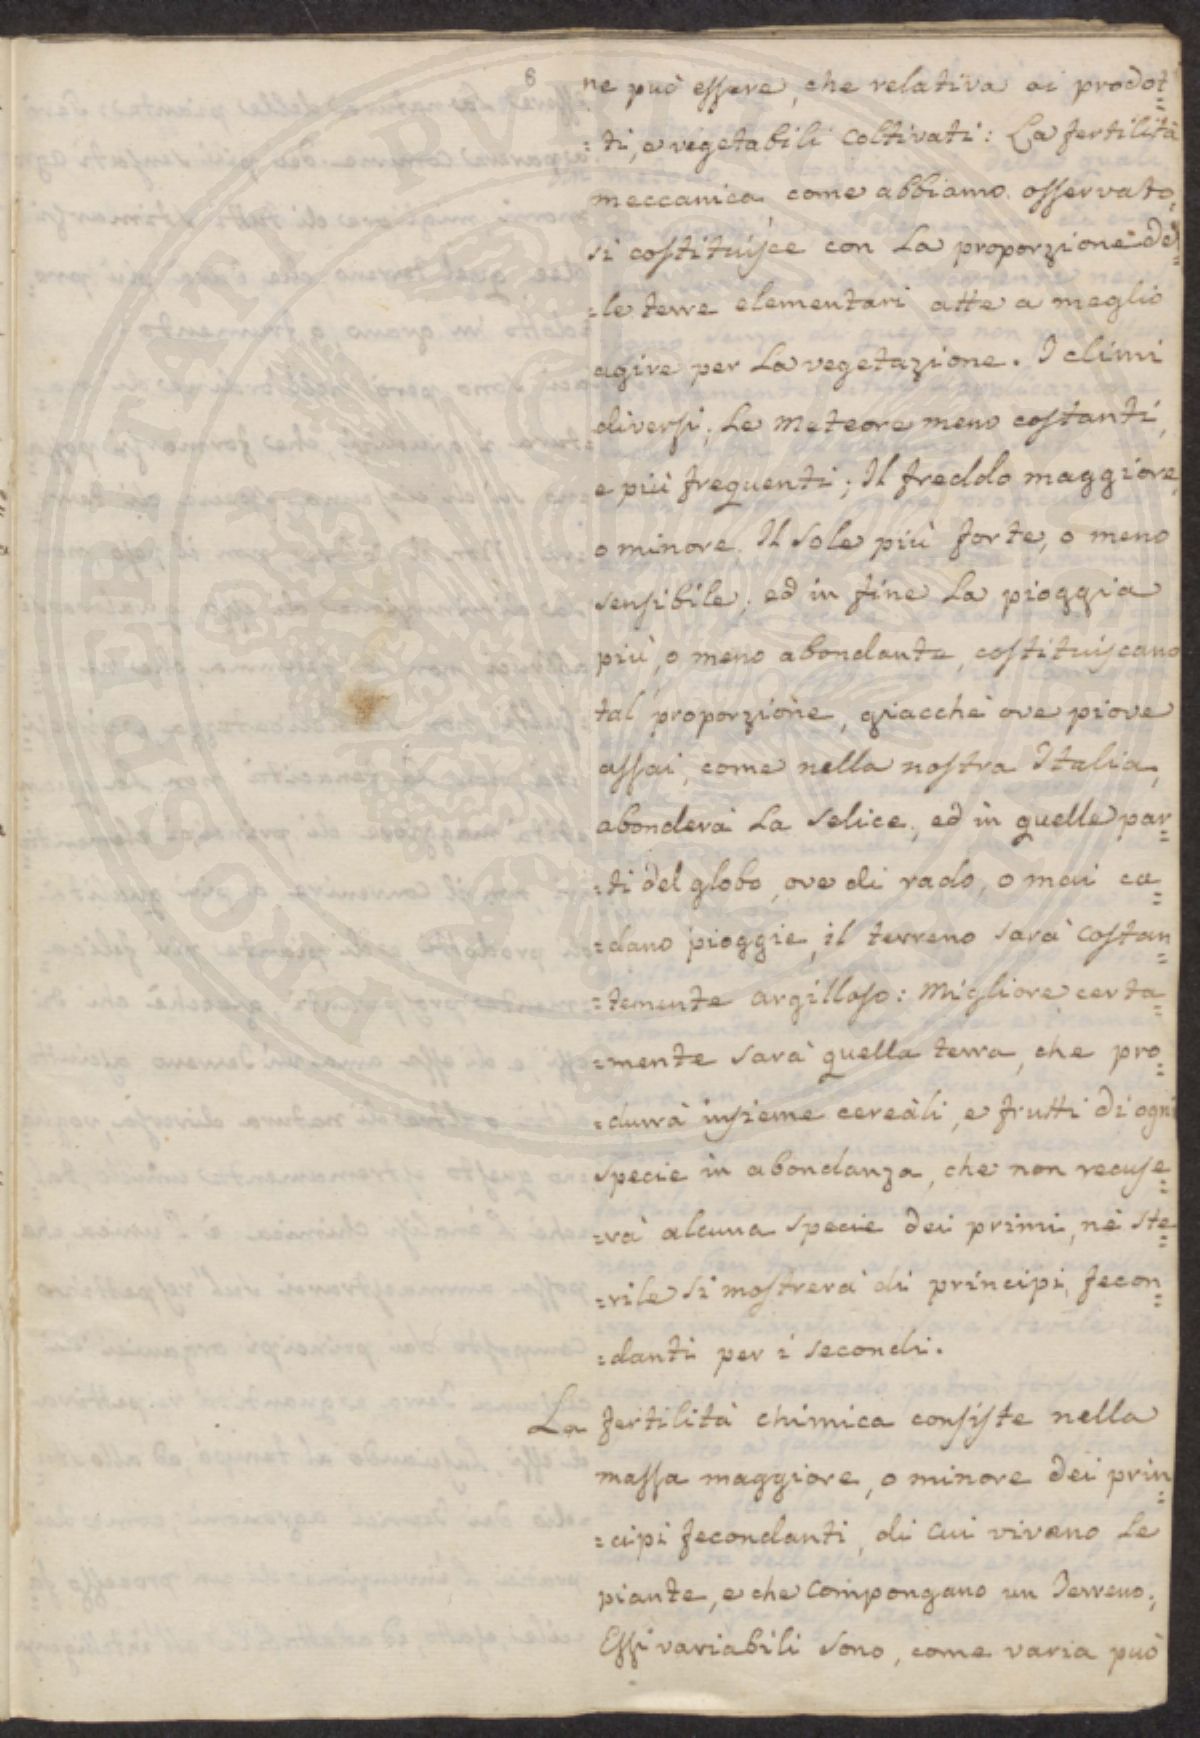 8
ne può essere, che relativa ai prodot=
=ti, e vegetabili coltivati: La fertilità
meccanica come abbiamo osservato,
si costituisce con la proporzione del=
=le terre elementari atte a meglio
agire per la vegetazione. I climi
diversi, Le Meteore meno costanti,
e più frequenti; Il freddo maggiore,
o minore. Il sole più forte, o meno
sensibile, ed in fine La pioggia
più, o meno abondante, costituiscano
tal proporzione, giacchè ove piove
assai, come nella nostra Italia,
abonderà La Selice, ed in quelle par=
=ti del globo, ove di rado, o mai ca=
=dano pioggie, il terreno sarà costan=
=temente argilloso: Migliore certa=
=mente sarà quella terra, che pro=
=durrà insieme cereàli, e frutti di ogni
specie in abondanza, che non recuse=
=rà alcuna specie dei primi, nè ste=
=rile si mostrerà di principi fecon=
=danti per i secondi.
La fertilità chimica consiste nella
massa maggiore, o minore dei prin=
=cipi fecondanti, di cui vivano le
piante, e che compongano un Terreno;
Essi variabili sono, come varia può